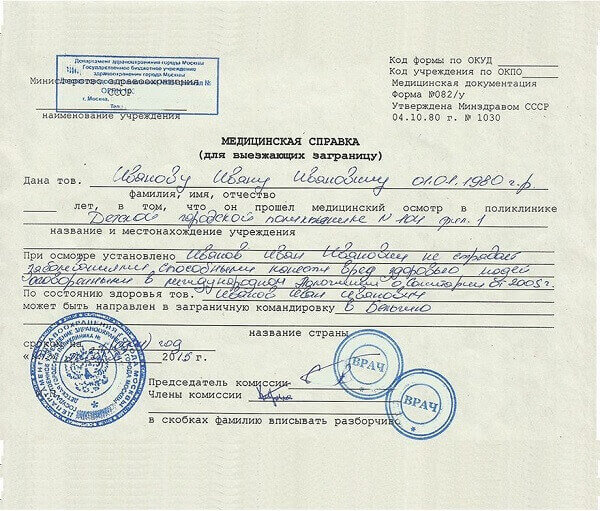 Департамент здравоохранения города Москвы
Государственное бюджетное учреждение
здравоохранения города Москвы
г. Москва,
Тел.:
Министерство здравоохранения
СССР
наименование учреждения
Код формы по ОКУД
Код учреждения по ОКПО
Медицинская документация
Форма №082/у
Утверждена Минздравом СССР
04.10.80 г. № 1030
МЕДИЦИНСКАЯ СПРАВКА
(для выезжающих заграницу)
Дана тов. Иванову Ивану Ивановичу 01.01.1980 г.р.
фамилия, имя, отчество
лет, в том, что он прошел медицинский осмотр в поликлинике
Детской городской поликлинике N 104 фил. 1
название и местонахождение учреждения
При осмотре установлено Иванов Иван Иванович не страдает
заболеваниями способными нанести вред здоровью людей
оговоренными в международном о санитарии от 2005 г.
По состоянию здоровья тов. Иванов Иван Иванович
может быть направлен в заграничную командировку в Бельгию
название страны
сроком на год
2015 г.
Председатель комиссии
Члены комиссии
в скобках фамилию вписывать разборчиво
ВРАЧ
ВРАЧ